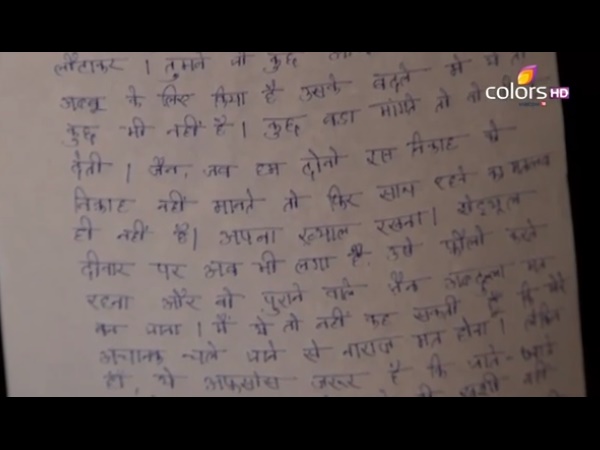 लौटाकर । तुमने वो कुछ
अब्बू के लिए किया है उसके बदले में ये तो
colors HD
कुछ भी नहीं है। कुछ बड़ा मांगते तो वो
देती । जैन, जब हम दोनो इस निकाह को
निकाह नहीं मानते तो फिर साथ रहने का मतलब
ही नहीं है। अपना ख्याल रखना। शेड्यूल
दीवार पर अब भी लगा है, उसे फॉलो करते
रहना और वो पुराने वाले जैन अब्दुल्ला मत
बन जाना। मैं ये तो नहीं कह सकती हूँ कि मेरे
अचानक चले जाने से नाराज मत होना। लेकिन
हाँ, ये अफसोस जरूर है कि जाते-जाते